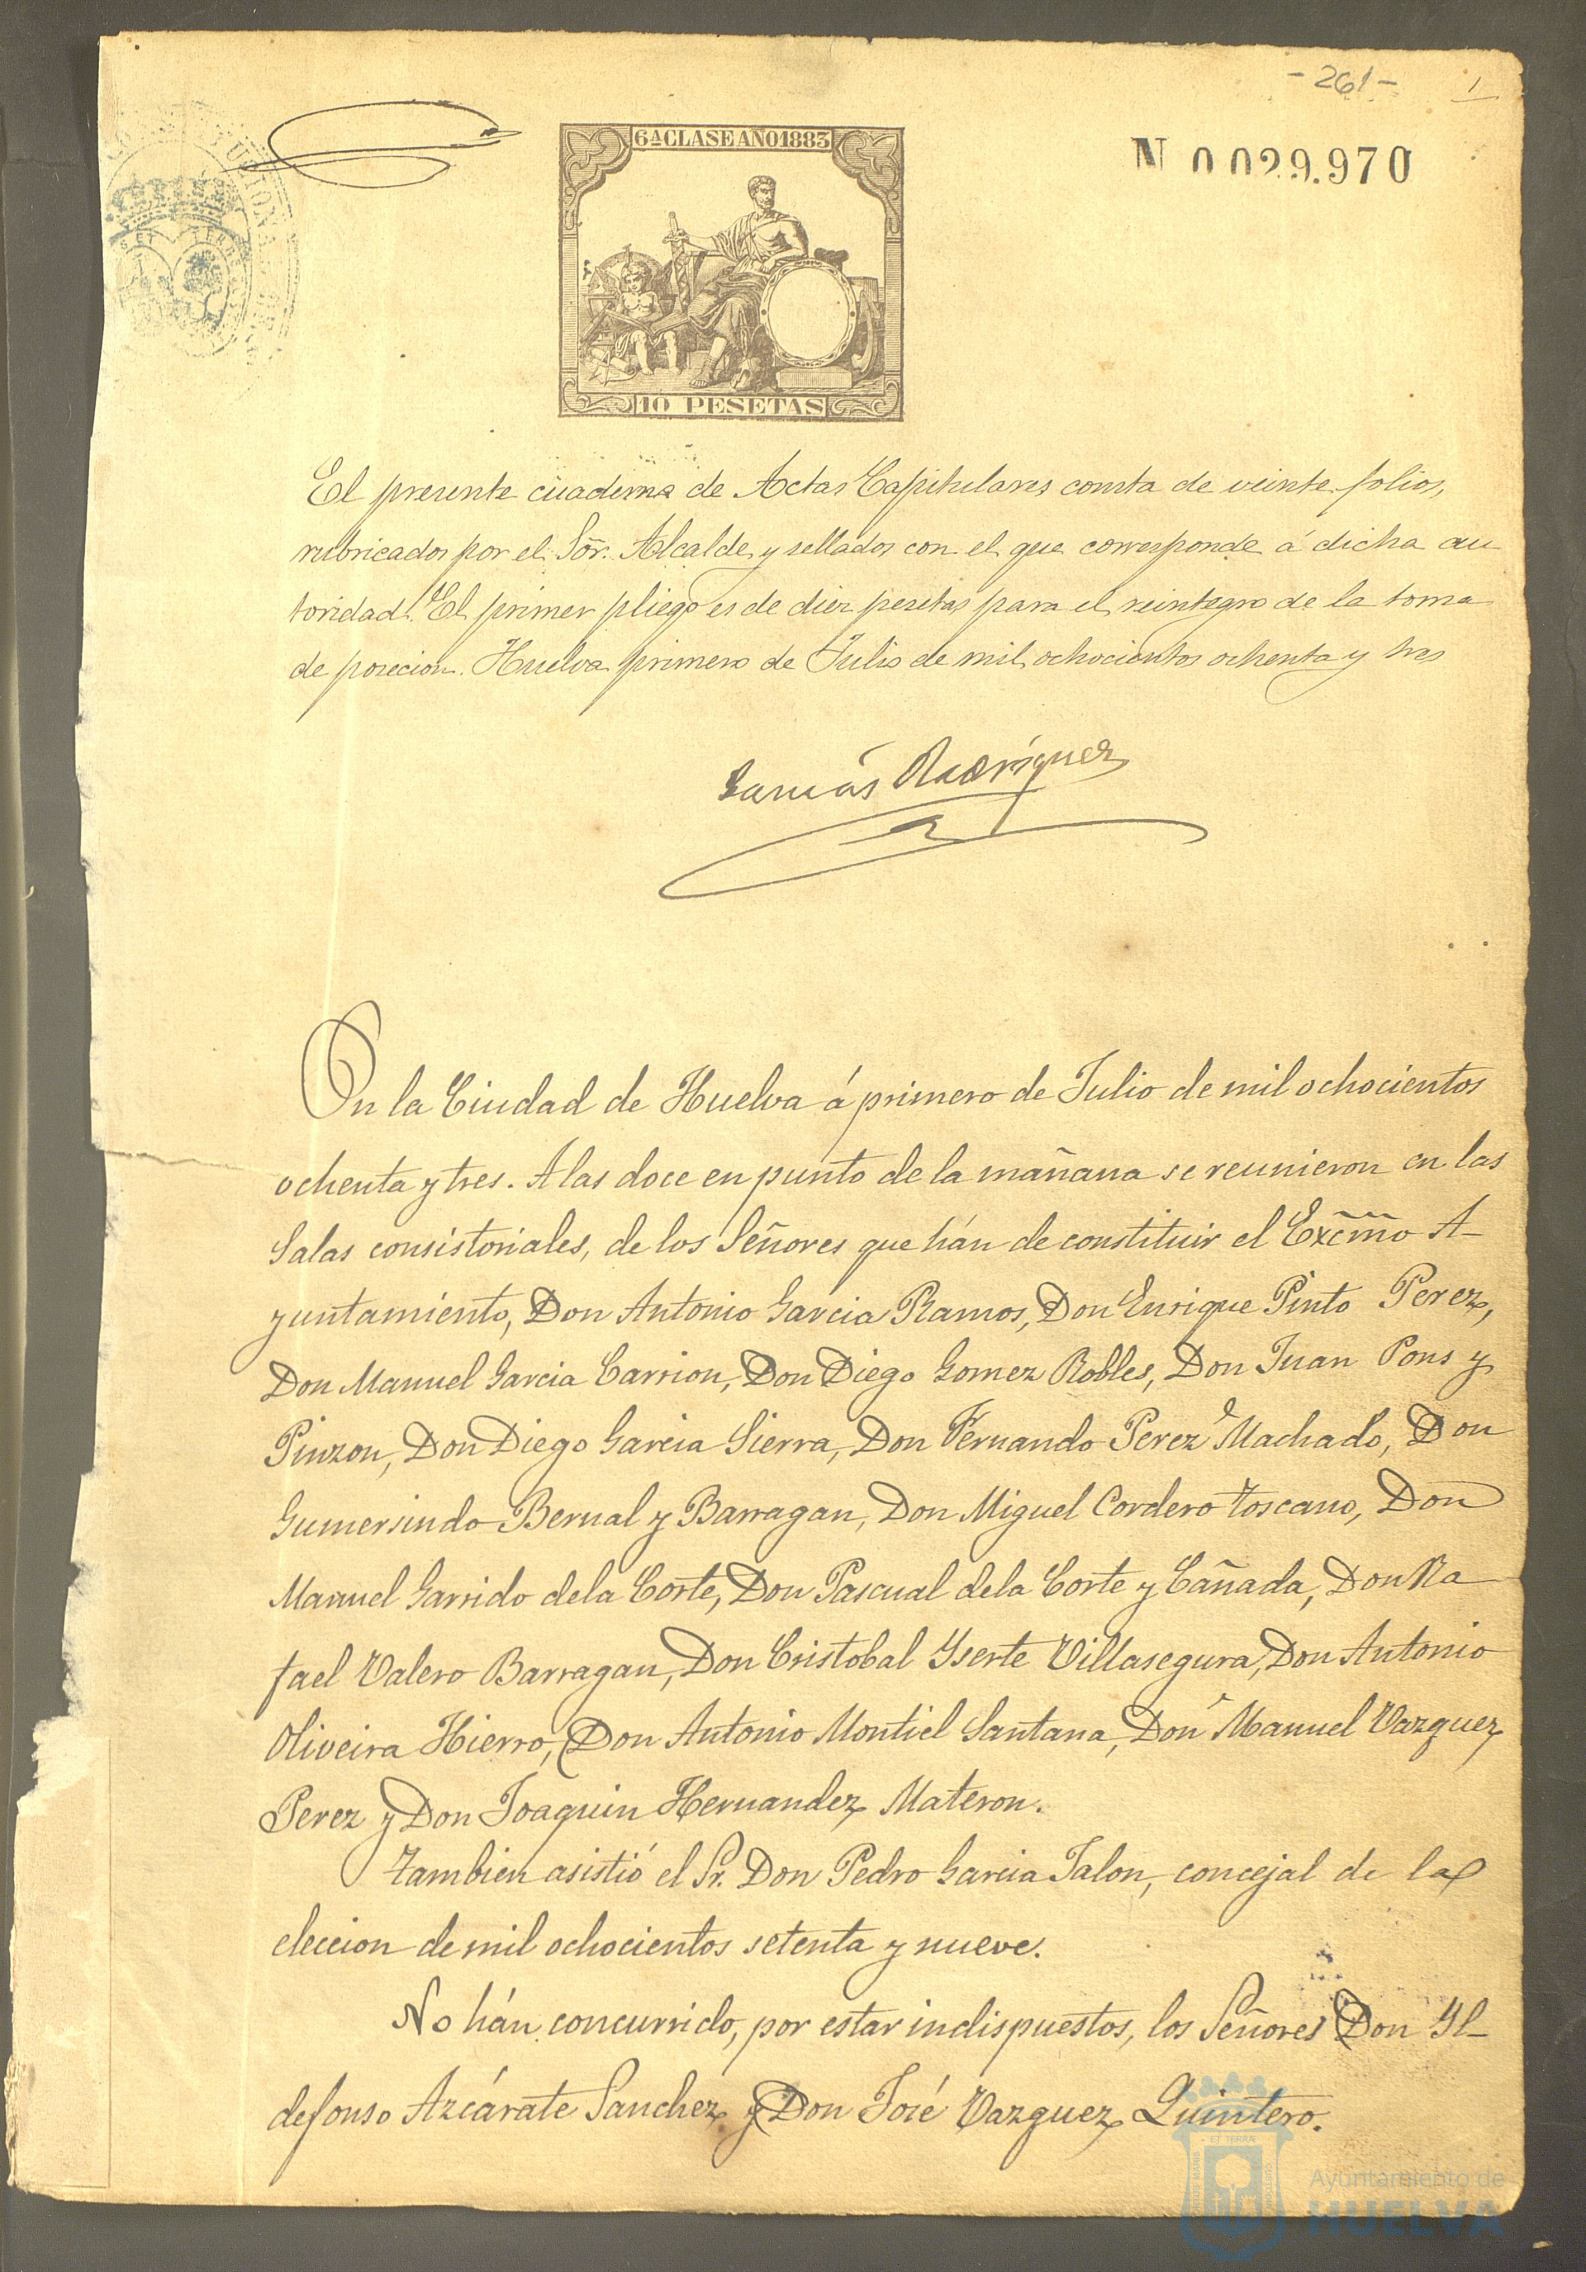 - 261 -
1
6ª CLASE AÑO 1883
N 0.029.970
10 PESETAS
El presente cuaderno de Actas Capitulares consta de veinte folios,
rubricados por el Sõr. Alcalde y sellados con el que corresponde á dicha au
toridad. El primer pliego es de diez pesetas para el reintegro de la toma
de posecion. Huelva primero de Julio de mil ochocientos ochenta y tres
Rodríguez
En la Ciudad de Huelva á primero de Julio de mil ochocientos
ochenta y tres. A las doce en punto de la mañana se reunieron en las
Salas consistoriales, de los Señores que hán de constituir el Excmo A-
yuntamiento, Don Antonio Garcia Ramos, Don Enrique Pinto Perez,
Don Manuel Garcia Carrion, Don Diego Gomez Robles, Don Juan Pons y
Pinzon, Don Diego Garcia Sierra, Don Fernando Perez Machado, Don
Gumersindo Bernal y Barragan, Don Miguel Cordero Toscano, Don
Manuel Garrido de la Corte, Don Pascual de la Corte y Cañada, Don Ra
fael Valero Barragan, Don Cristobal Yserte Villasegura, Don Antonio
Oliveira Hierro, Don Antonio Montiel Santana, Don Manuel Vazquez
Perez y Don Joaquin Hernandez Materon.
Tambien asistió el Sr. Don Pedro Garcia Jalon, concejal de la
eleccion de mil ochocientos setenta y nueve.
No hán concurrido, por estar indispuestos, los Señores Don Yl-
defonso Azcárate Sanchez y Don José Vazquez Quintero.
Ayuntamiento de
HUELVA